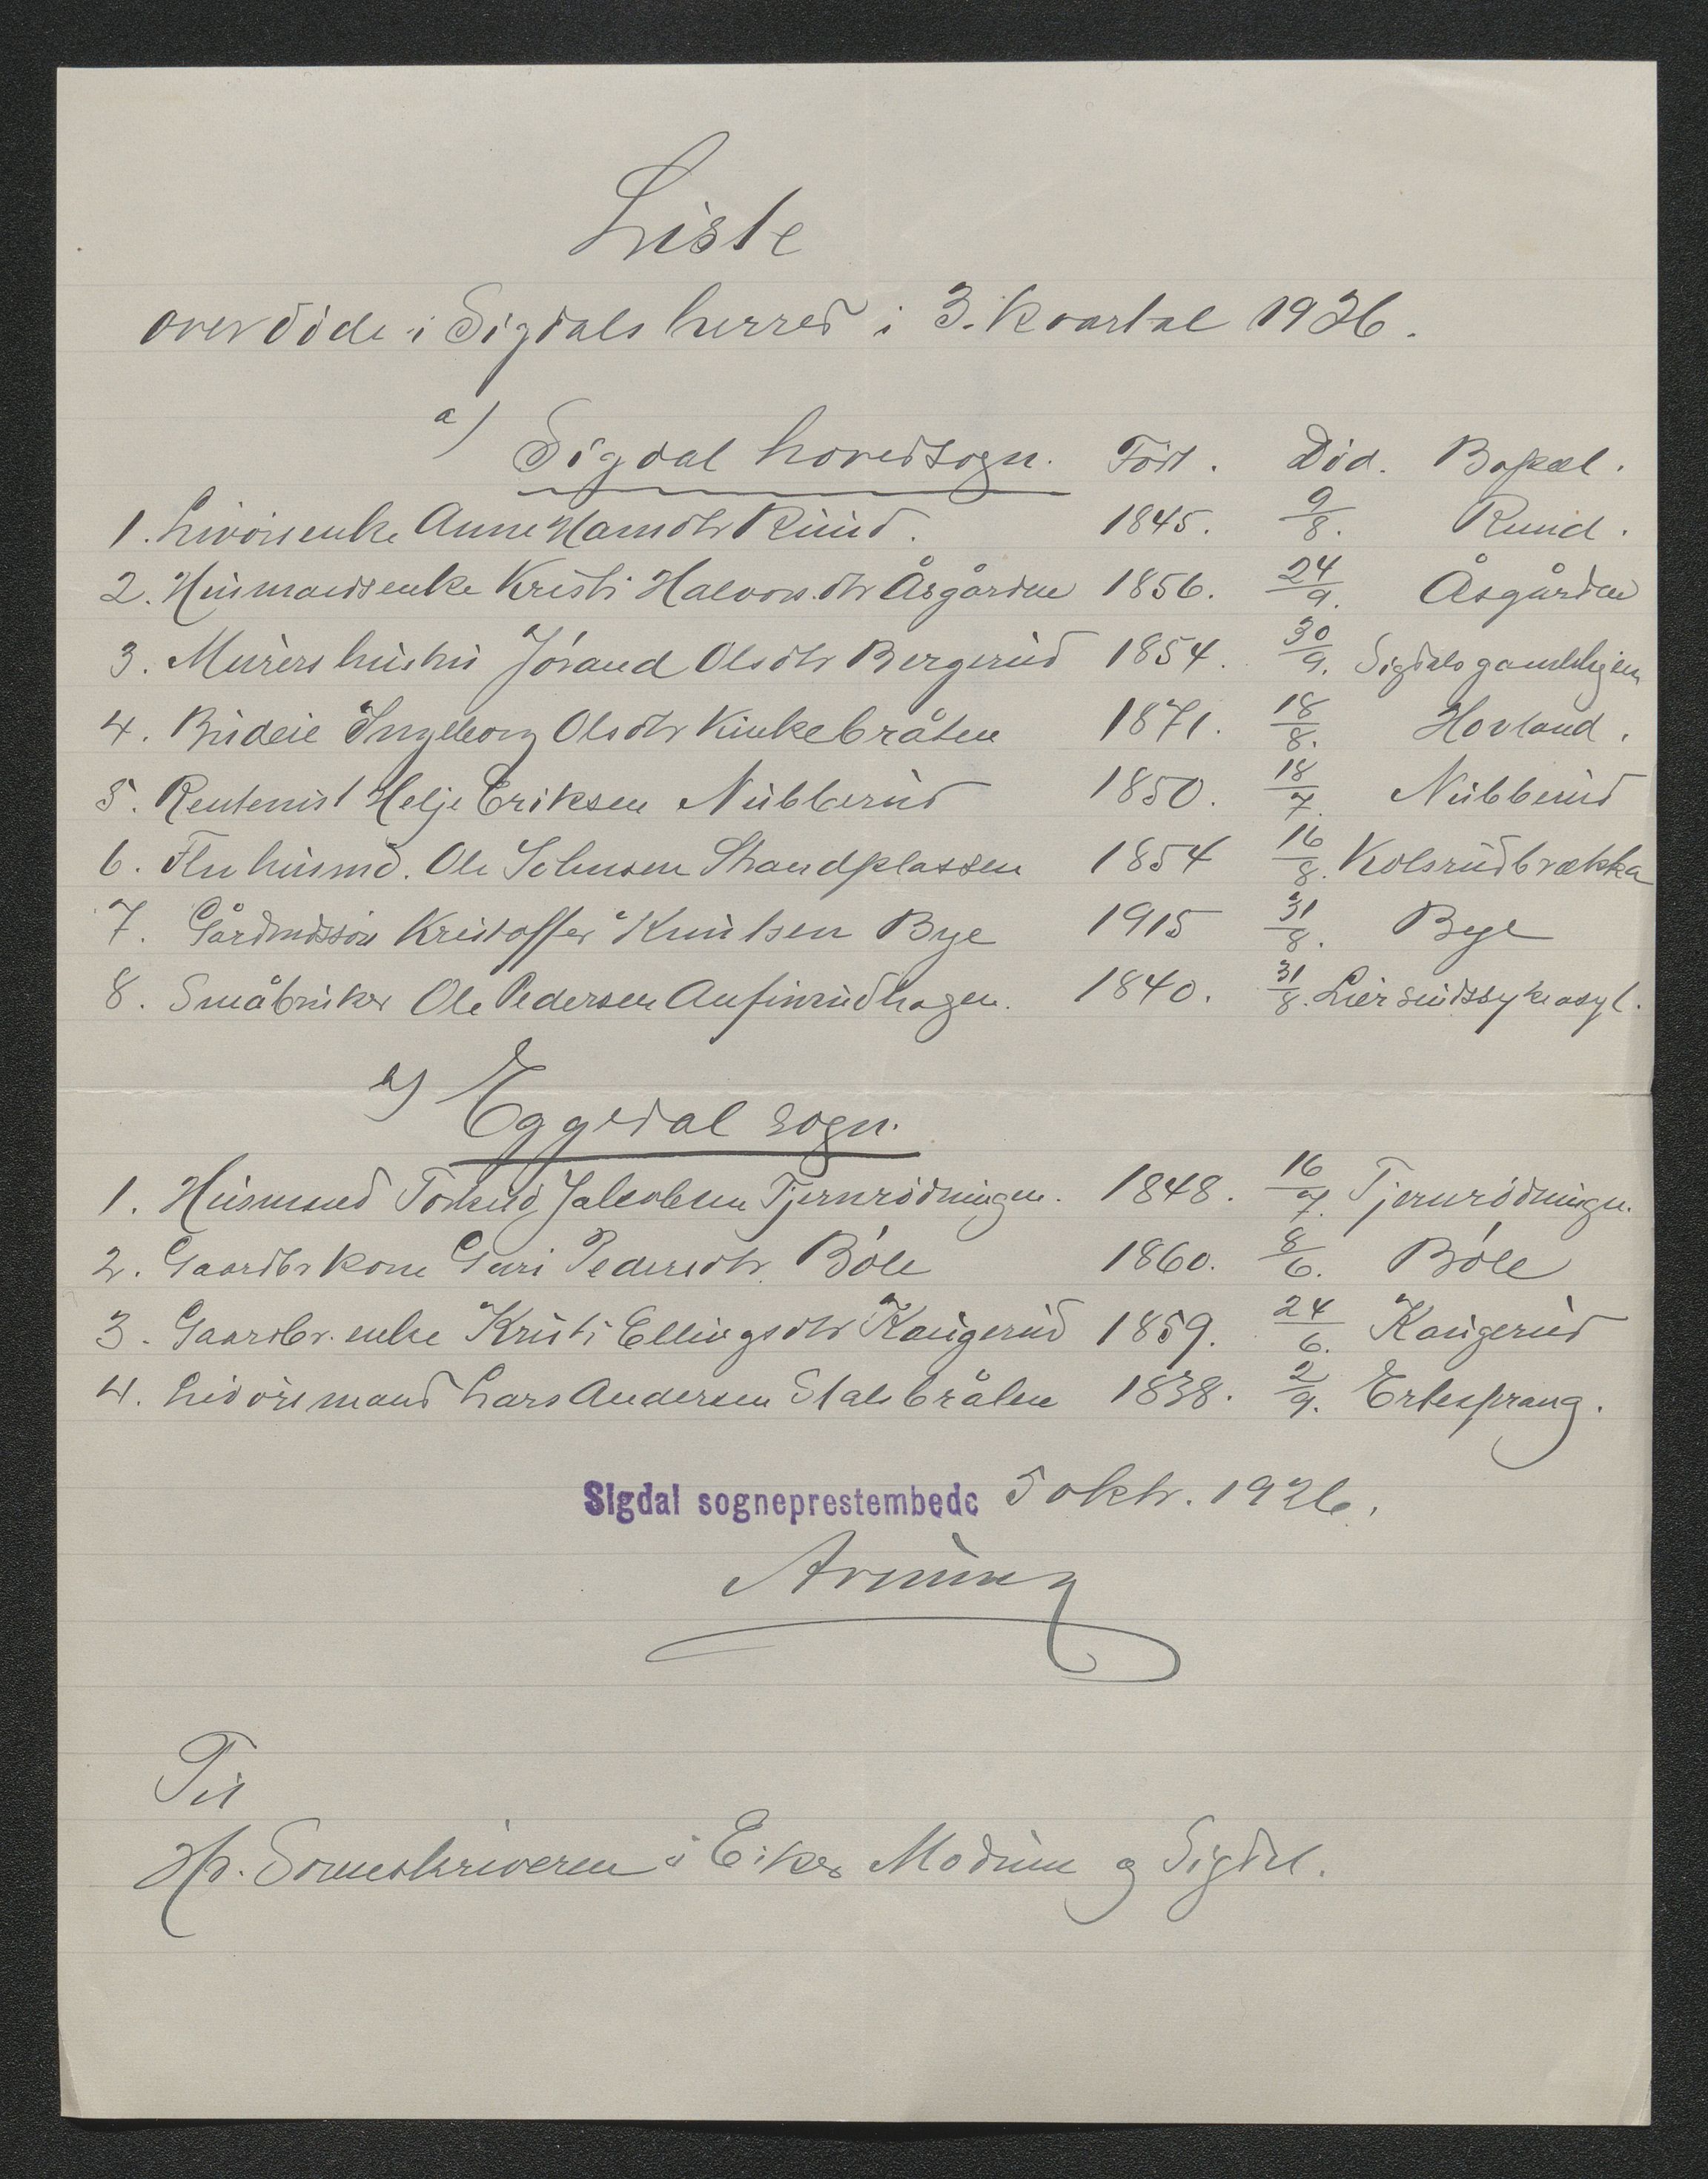 Liste
over döde i Sigdals herred i 3. kvartal 1926.
a) Sigdal hovedsogn. Född. Död. Bopæl.
1. Livörsenke Anne Hansdtr Ruud. 1845. 9/8. Ruud.
2. Husmandsenke Kristi Halvorsdtr Åsgården 1856. 24/9. Åsgården
3. Murers hustru Jörand Olsdtr Bergerud 1854. 30/9. Sigdals gamlehjem
4. Budeie Ingeborg Olsdtr Kinkebråten 1871. 18/8. Hovland.
5. Rentenist Helje Eriksen Nubberud 1850. 18/7. Nubberud
6. Fhv husmd. Ole Johnsen Strandplassen 1854 16/8. Kolsrudbrækka
7. Gårdmdssön Kristoffer Knutsen Bye 1915 31/8. Bye
8. Småbruker Ole Pedersen Aufinrudhagen. 1840. 31/8. Lier sindssykeasyl.
b) Eggedal sogn.
1. Husmand Torkild Jakobsen Tjernrödningen. 1848. 16/7. Tjernrödningn.
2. Gaardbr kone Guri Pedersdtr. Böle 1860. 8/6. Böle
3. Gaardbr. enke Kristi Ellingsdtr Kaugerud 1859. 24/6. Kaugerud
4. Livörsmand Lars Andersen Stalsbråten 1838. 2/9. Ertesprang.
Sigdal sogneprestembede 5 oktr. 1926.
Til
Hr. Sorenskriveren i Eiker Modum og Sigdal.